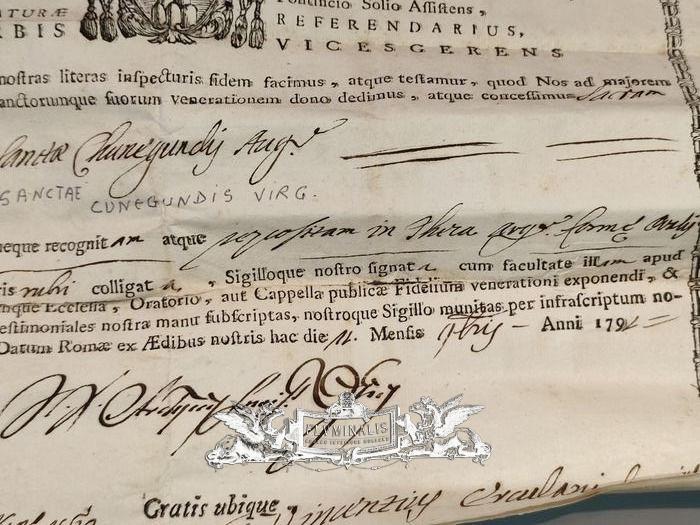 ATURÆ
RBIS
Pontificio Solio Assistens,
REFERENDARIUS,
VICESGERENS
nostras literas inspecturis fidem facimus, atque testamur, quod Nos ad majorem
anctorumque suorum venerationem dono dedimus, atque concessimus Sacram
Sanctæ Chunegundis
SANCTAE CUNEGUNDIS VIRG.
eque recognitam atque repositam in Theca formæ
ris rubri colligata, Sigilloque nostro signata cum facultate illam apud
nque Ecclesia, Oratorio, aut Cappella publicæ Fidelium venerationi exponendi, &
estimoniales nostra manu subscriptas, nostroque Sigillo munitas per infrascriptum no-
Datum Romæ ex Ædibus nostris hac die 11. Mensis Anni 179
FLUMINALIS
Gratis ubique. Vincentius Erculani